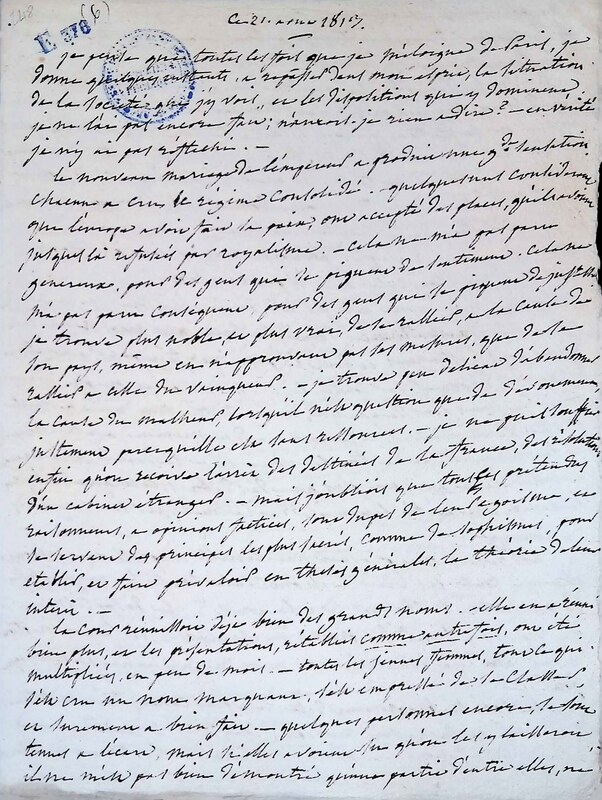 248
E 376 (6)
Ce 21. aout 181
je pense que toutes les fois que je m'éloigne de Paris, je
donne quelques instants, a repasser dans mon esprit, la situation
de la société que j'y vois, et les dispositions qui y dominent.
je ne l'ai pas encore fait; n'aurois-je rien a dire? - en vérité
je n'y ai pas réfléchi. -
le nouveau mariage de l'empereur a produit une gde sensation
chacun a cru le régime consolidé. - quelques uns considérant
que l'europe avoit fait la paix, ont accepté des places, qu'ils avoient
jusques là refusées par royalisme. - cela ne m'a pas paru
genereux, pour des gens qui se piquent de sentiment. cela ne
m'a pas paru consequent, pour des gens qui se piquent de
je trouve plus noble, et plus vrai, de se rallier, a la cause de
son pays, même en n'approuvant pas les mesures, que de se
rallier a celle du vainqueur. - je trouve peu délicat d'abandonner
la cause du malheur, lorsqu'il n'est question que de dévouement,
justement parcequ'elle est sans ressources. - je ne puis souffrir
enfin qu'on reçoive l'arrêt des destinées de la france, des résolutions
d'un cabinet étranger. - mais j'oubliois que tous ces prétendus
raisonneurs, a opinions factices, sont dupes de leur égoisme, et
se servent des principes les plus sacrés, comme de sophismes, pour
établir, et faire prévaloir en theses générales, la théorie de leur
intérêt. -
la cour réunissoit déjà bien des grands noms. - elle en a réuni
bien plus, et les présentations, rétablies comme autrefois, ont été
multipliées, en peu de mois. - toutes les jeunes femmes, tout ce qui
s'est cru un nom marquant, s'est empressé de se classer,
et surement a bien fait. - quelques personnes encore, se sont
tenues a l'écart, mais si elles avoient su qu'on les y laisseroit
il ne m'est pas bien démontré qu'une partie d'entre elles, ne